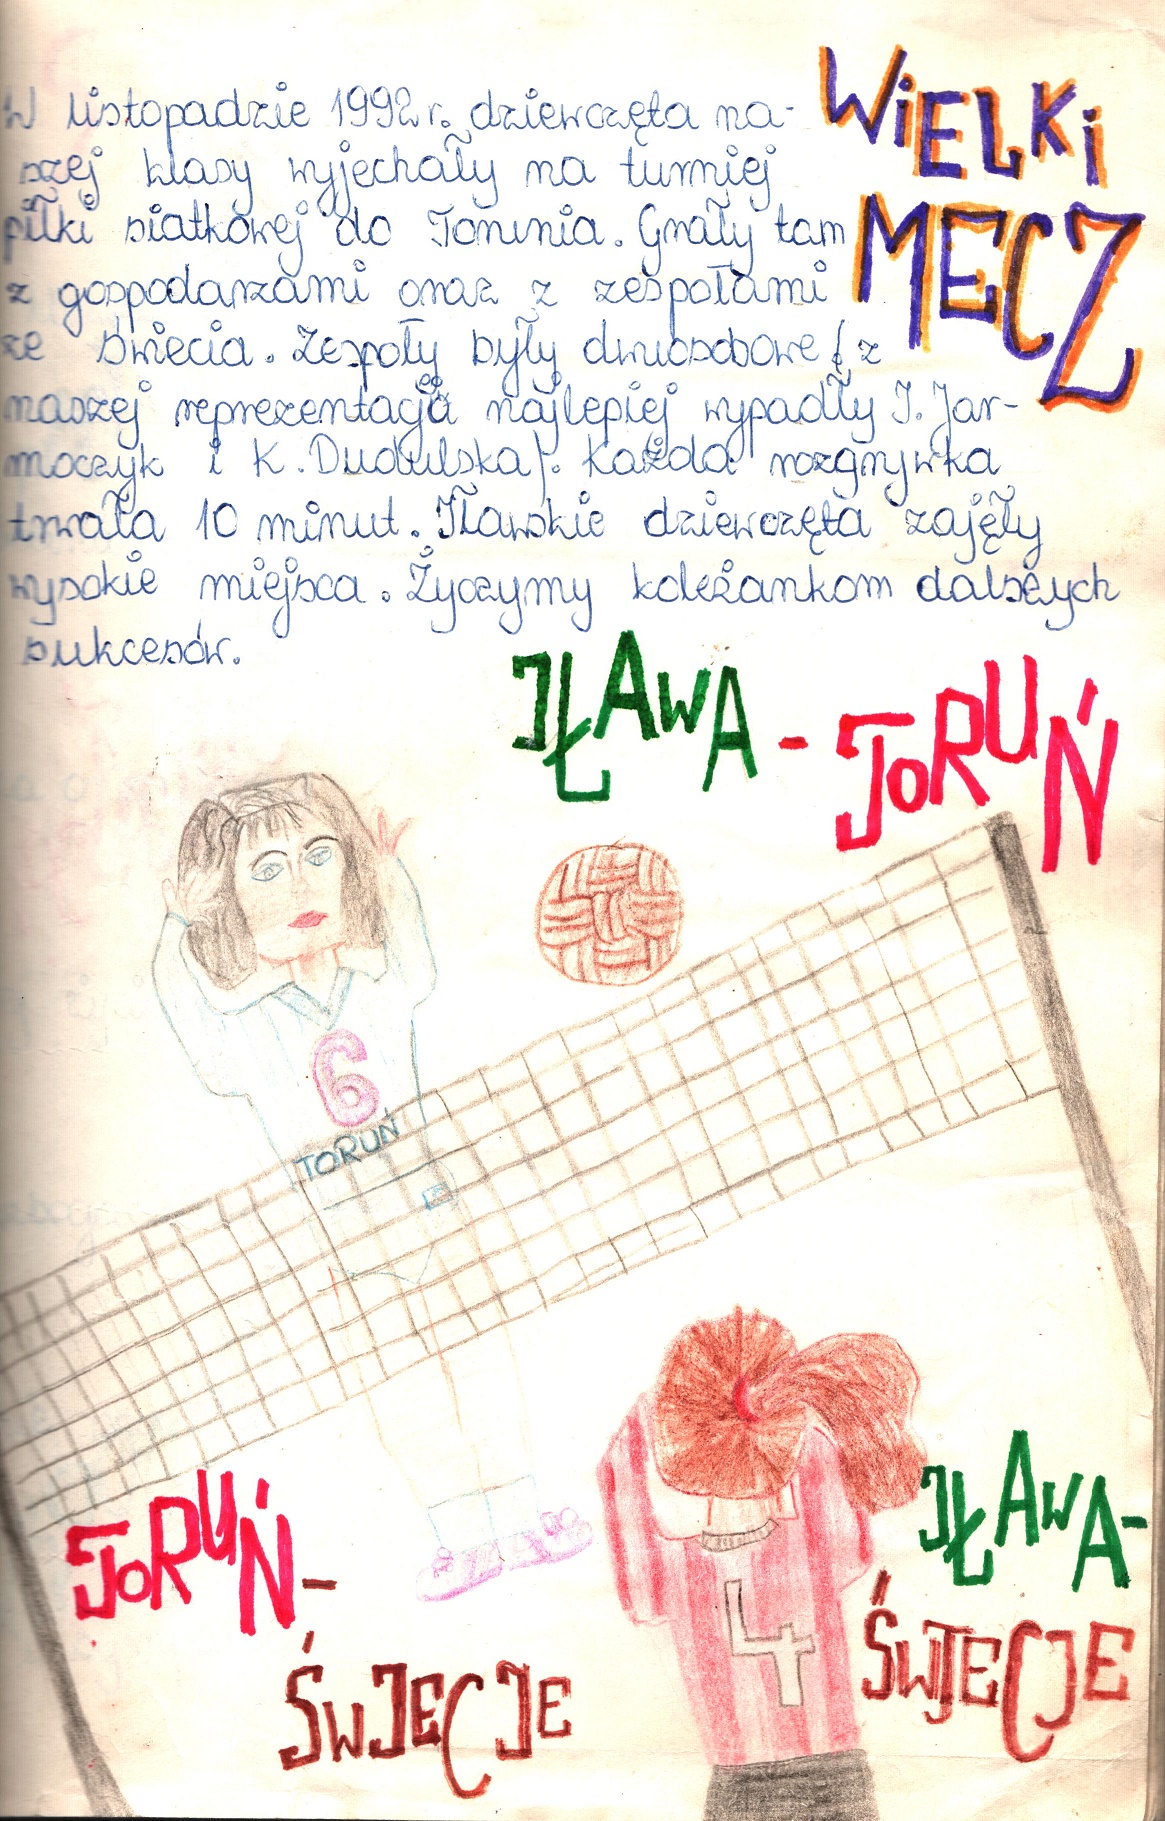 WiELKi
MECZ
W listopadzie 1992 r. dziewczęta na-
szej klasy wyjechały na turniej
piłki siatkowej do Torunia. Grały tam
z gospodarzami oraz z zespołami
ze Świecia. Zespoły były dwuosobowe / z
naszej reprezentacji najlepiej wypadły J. Jar-
moczyk i K. Dudulska /. Każda rozgrywka
trwała 10 minut. Iławskie dziewczęta zajęły
wysokie miejsca. Życzymy koleżankom dalszych
sukcesów.
IŁAWA - TORUŃ
6
TORUŃ
TORUŃ -
ŚWIECIE
4
IŁAWA -
ŚWIECIE